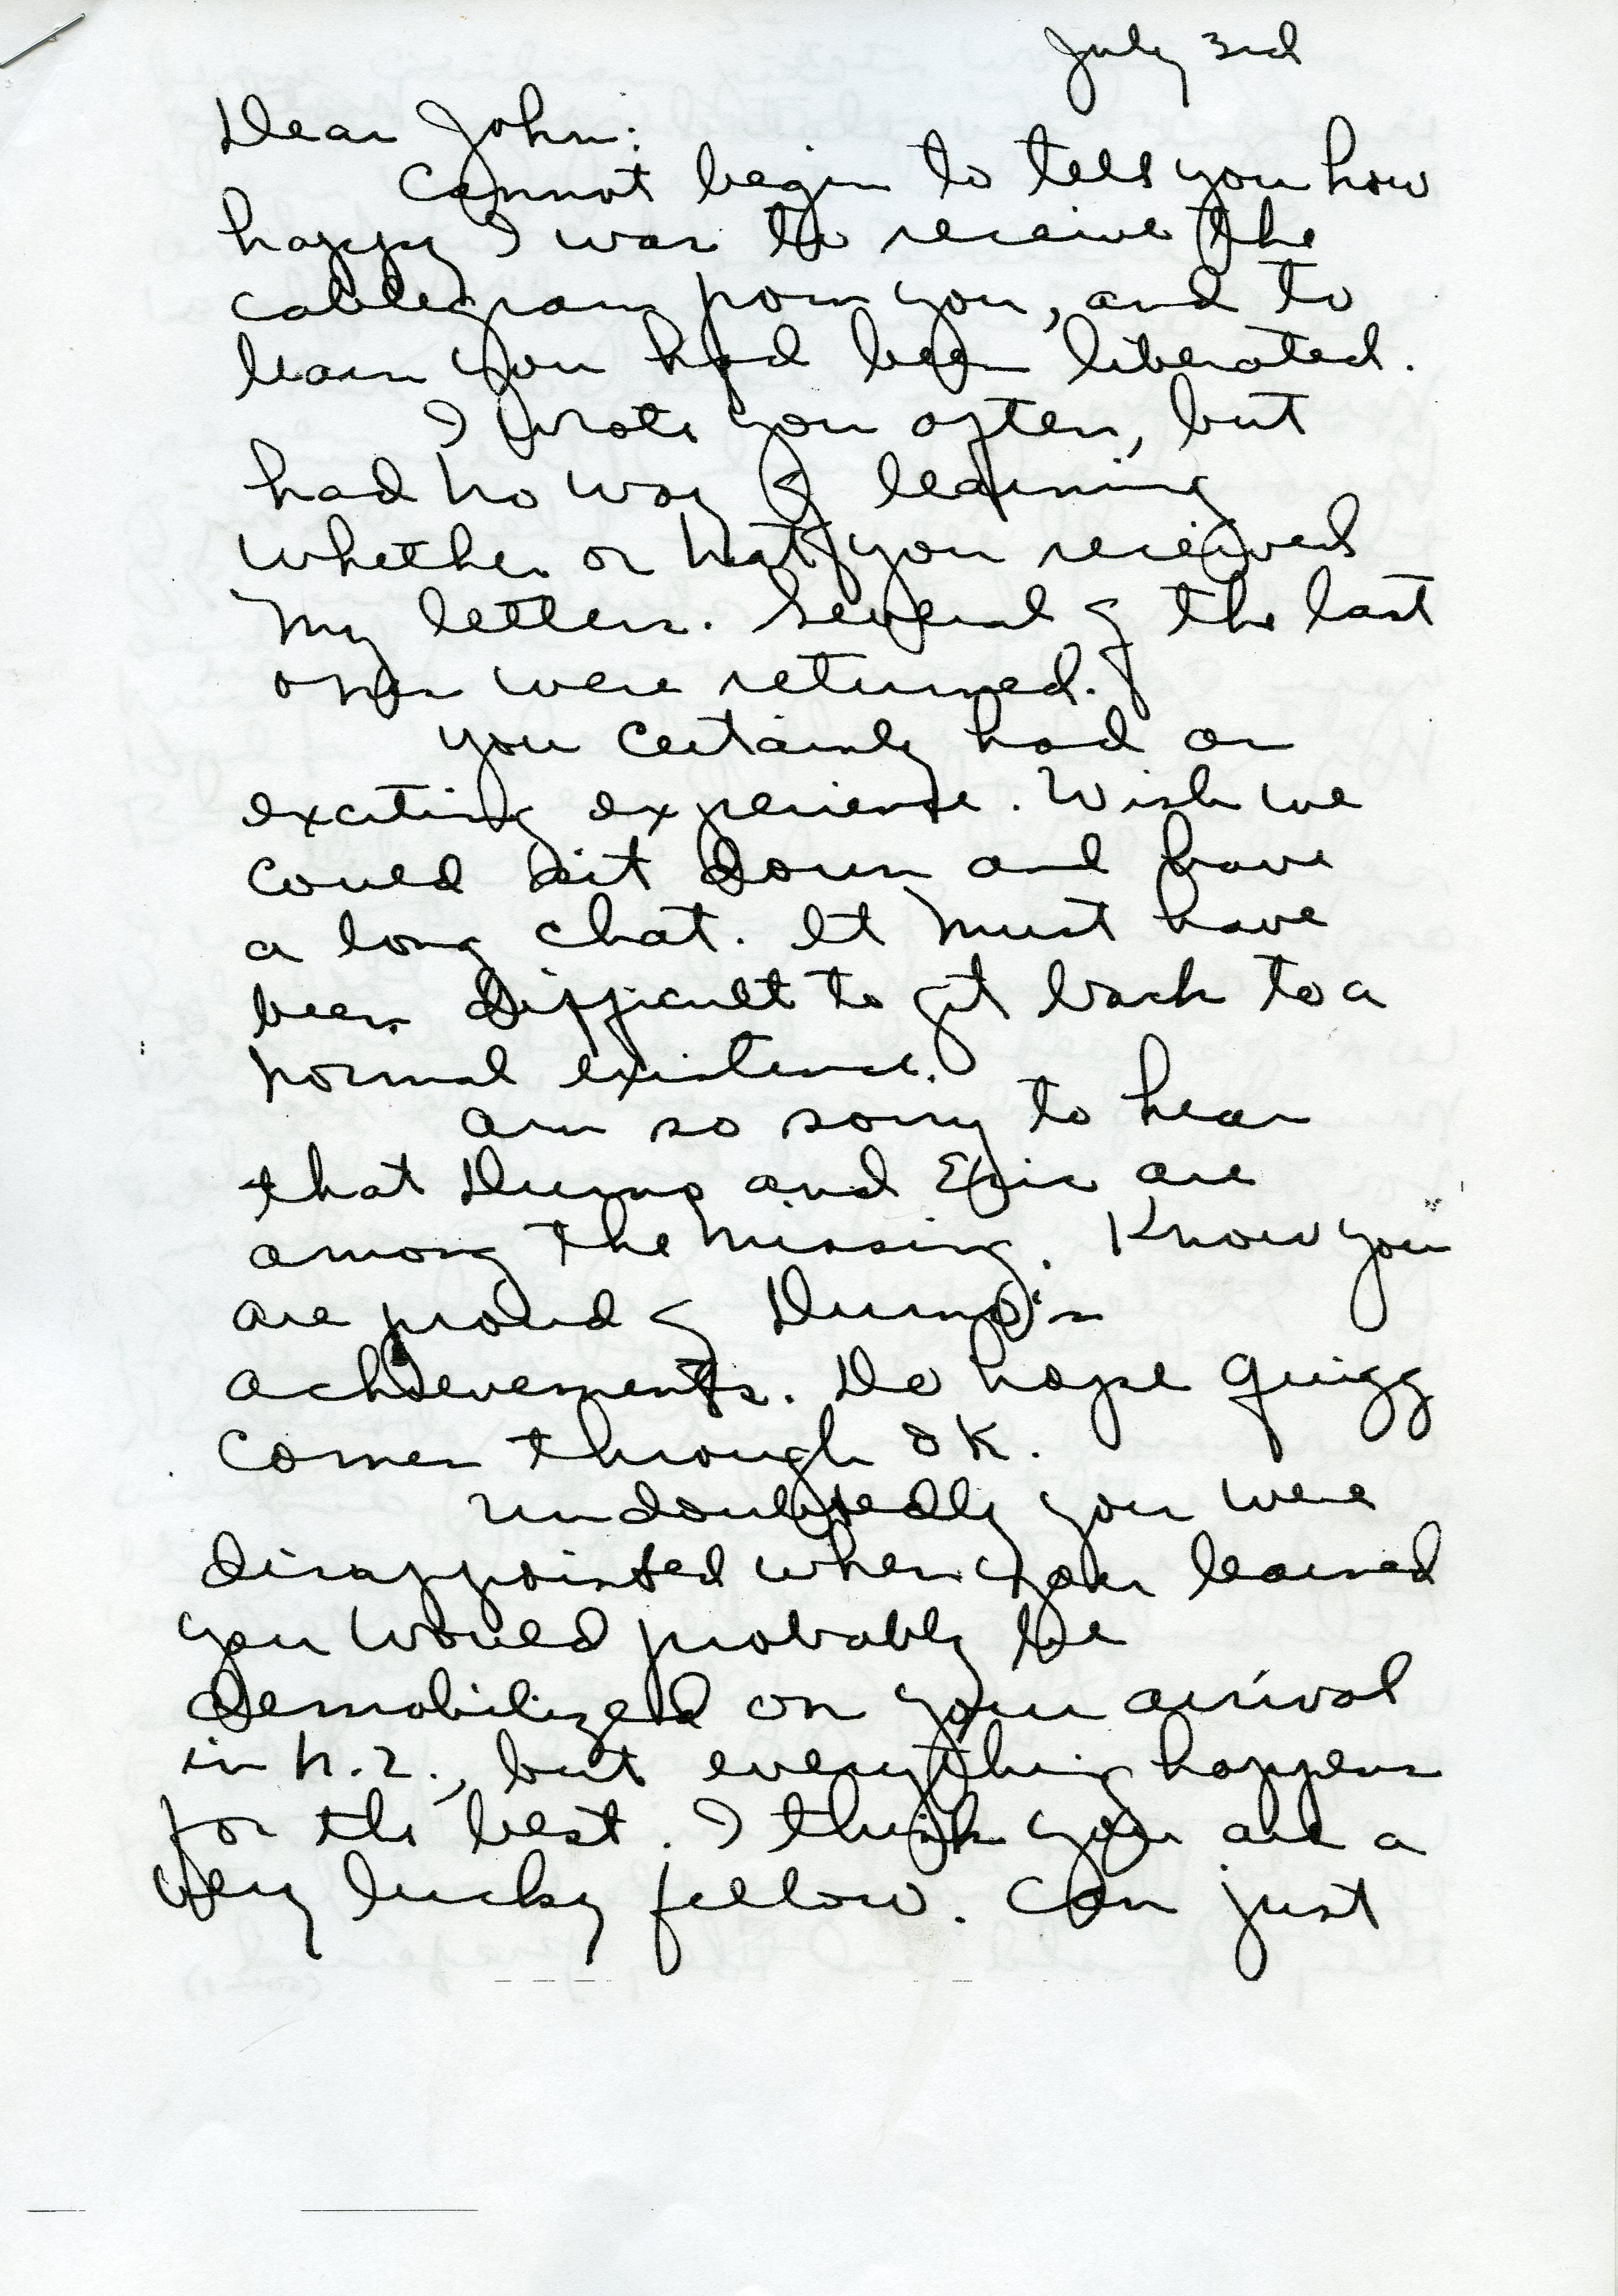 July 3rd
Dear John:
Cannot begin to tell you how
happy I was to receive the
cablegram from you, and to
learn you had been liberated.
I wrote you often, but
had no way of learning
whether or not you received
my letters. Several of the last
ones were returned.
You certainly had an
exciting experience. Wish we
could sit down and have
a long chat. It must have
been difficult to get back to a
normal existence.
Am so sorry to hear
that Dump and Eric are
among the missing. Know you
are proud of Dump's
achievements. Do hope Quigg
comes through OK.
Undoubtedly you were
disappointed when you learned
you would probably be
demobilized on your arrival
in N.Z., but everything happens
for the best. I think you are a
very lucky fellow. Can just